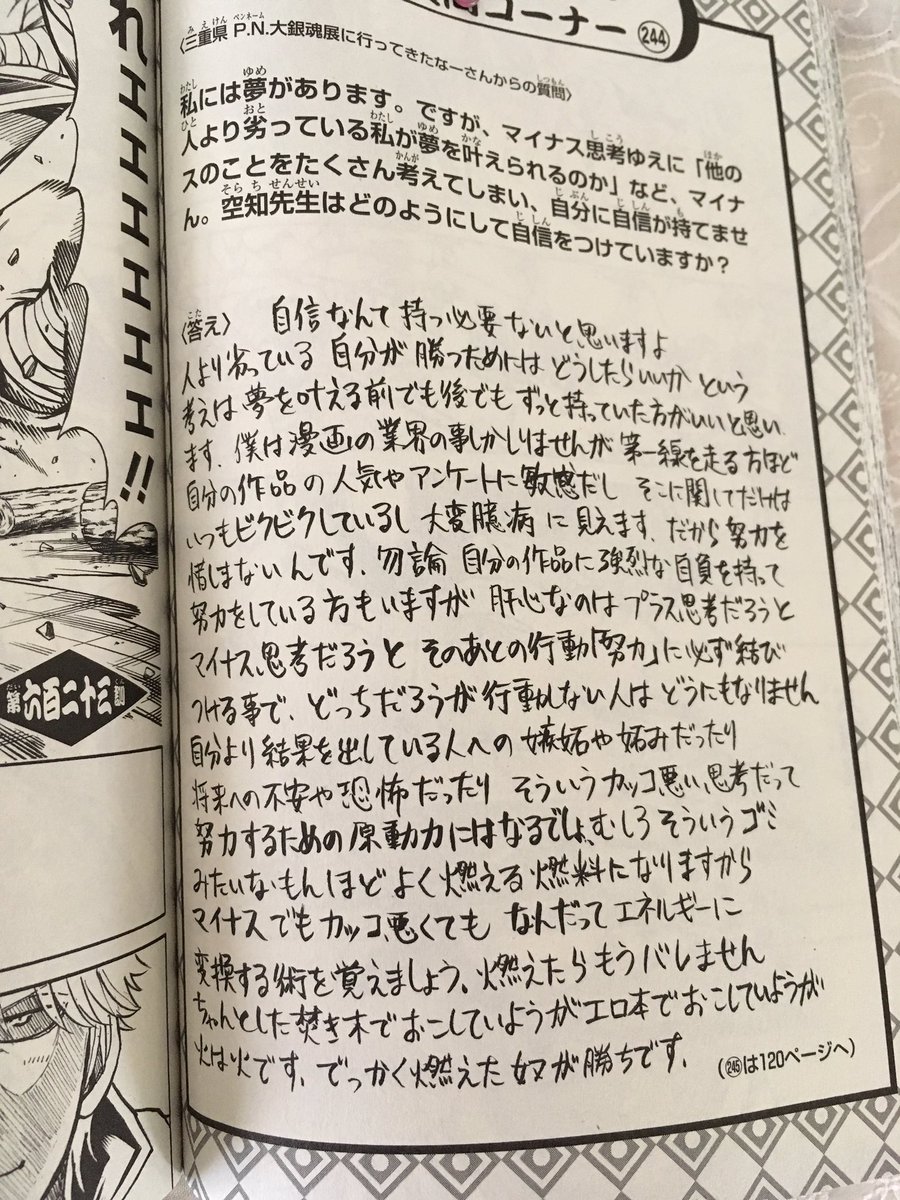 コーナー 244
〈三重県 P.N.大銀魂展に行ってきたなーさんからの質問〉
私には夢があります。ですが、マイナス思考ゆえに「他の
人より劣っている私が夢を叶えられるのか」など、マイナ
スのことをたくさん考えてしまい、自分に自信が持てませ
ん。空知先生はどのようにして自信をつけていますか？
〈答え〉 自信なんて持つ必要ないと思いますよ
人より劣っている 自分が 勝つためには どうしたらいいか という
考えは 夢を叶える前でも後でも ずっと持っていた方がいいと思い
ます. 僕は漫画の業界の事しかしりませんが 第一線を走る方ほど
自分の作品の人気やアンケートに敏感だし そこに関してだけは
いつもビクビクしているし 大変臆病に見えます. だから努力を
惜しまないんです. 勿論 自分の作品に強烈な自負を持って
努力をしている方もいますが 肝心なのは プラス思考だろうと
マイナス思考だろうと そのあとの行動「努力」に必ず結び
つける事で、どっちだろうが行動しない人は どうにもなりません
自分より結果を出している人への 嫉妬や妬みだったり
将来への不安や恐怖だったり そういうカッコ悪い思考だって
努力するための原動力にはなるでしょ. むしろ そういうゴミ
みたいなもんほど よく燃える燃料になりますから
マイナスでもカッコ悪くても なんだって エネルギーに
変換する術を覚えましょう. 燃えたらもうバレません
ちゃんとした焚き木でおこしていようがエロ本でおこしていようが
火は火です. でっかく燃えた奴が勝ちです.
(245は120ページへ)
れェェェェェェェ!!
第六百二十三訓